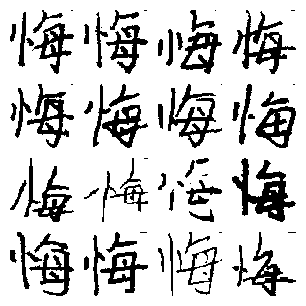 悔悔悔悔
悔悔悔悔
悔悔悔悔
悔悔悔悔